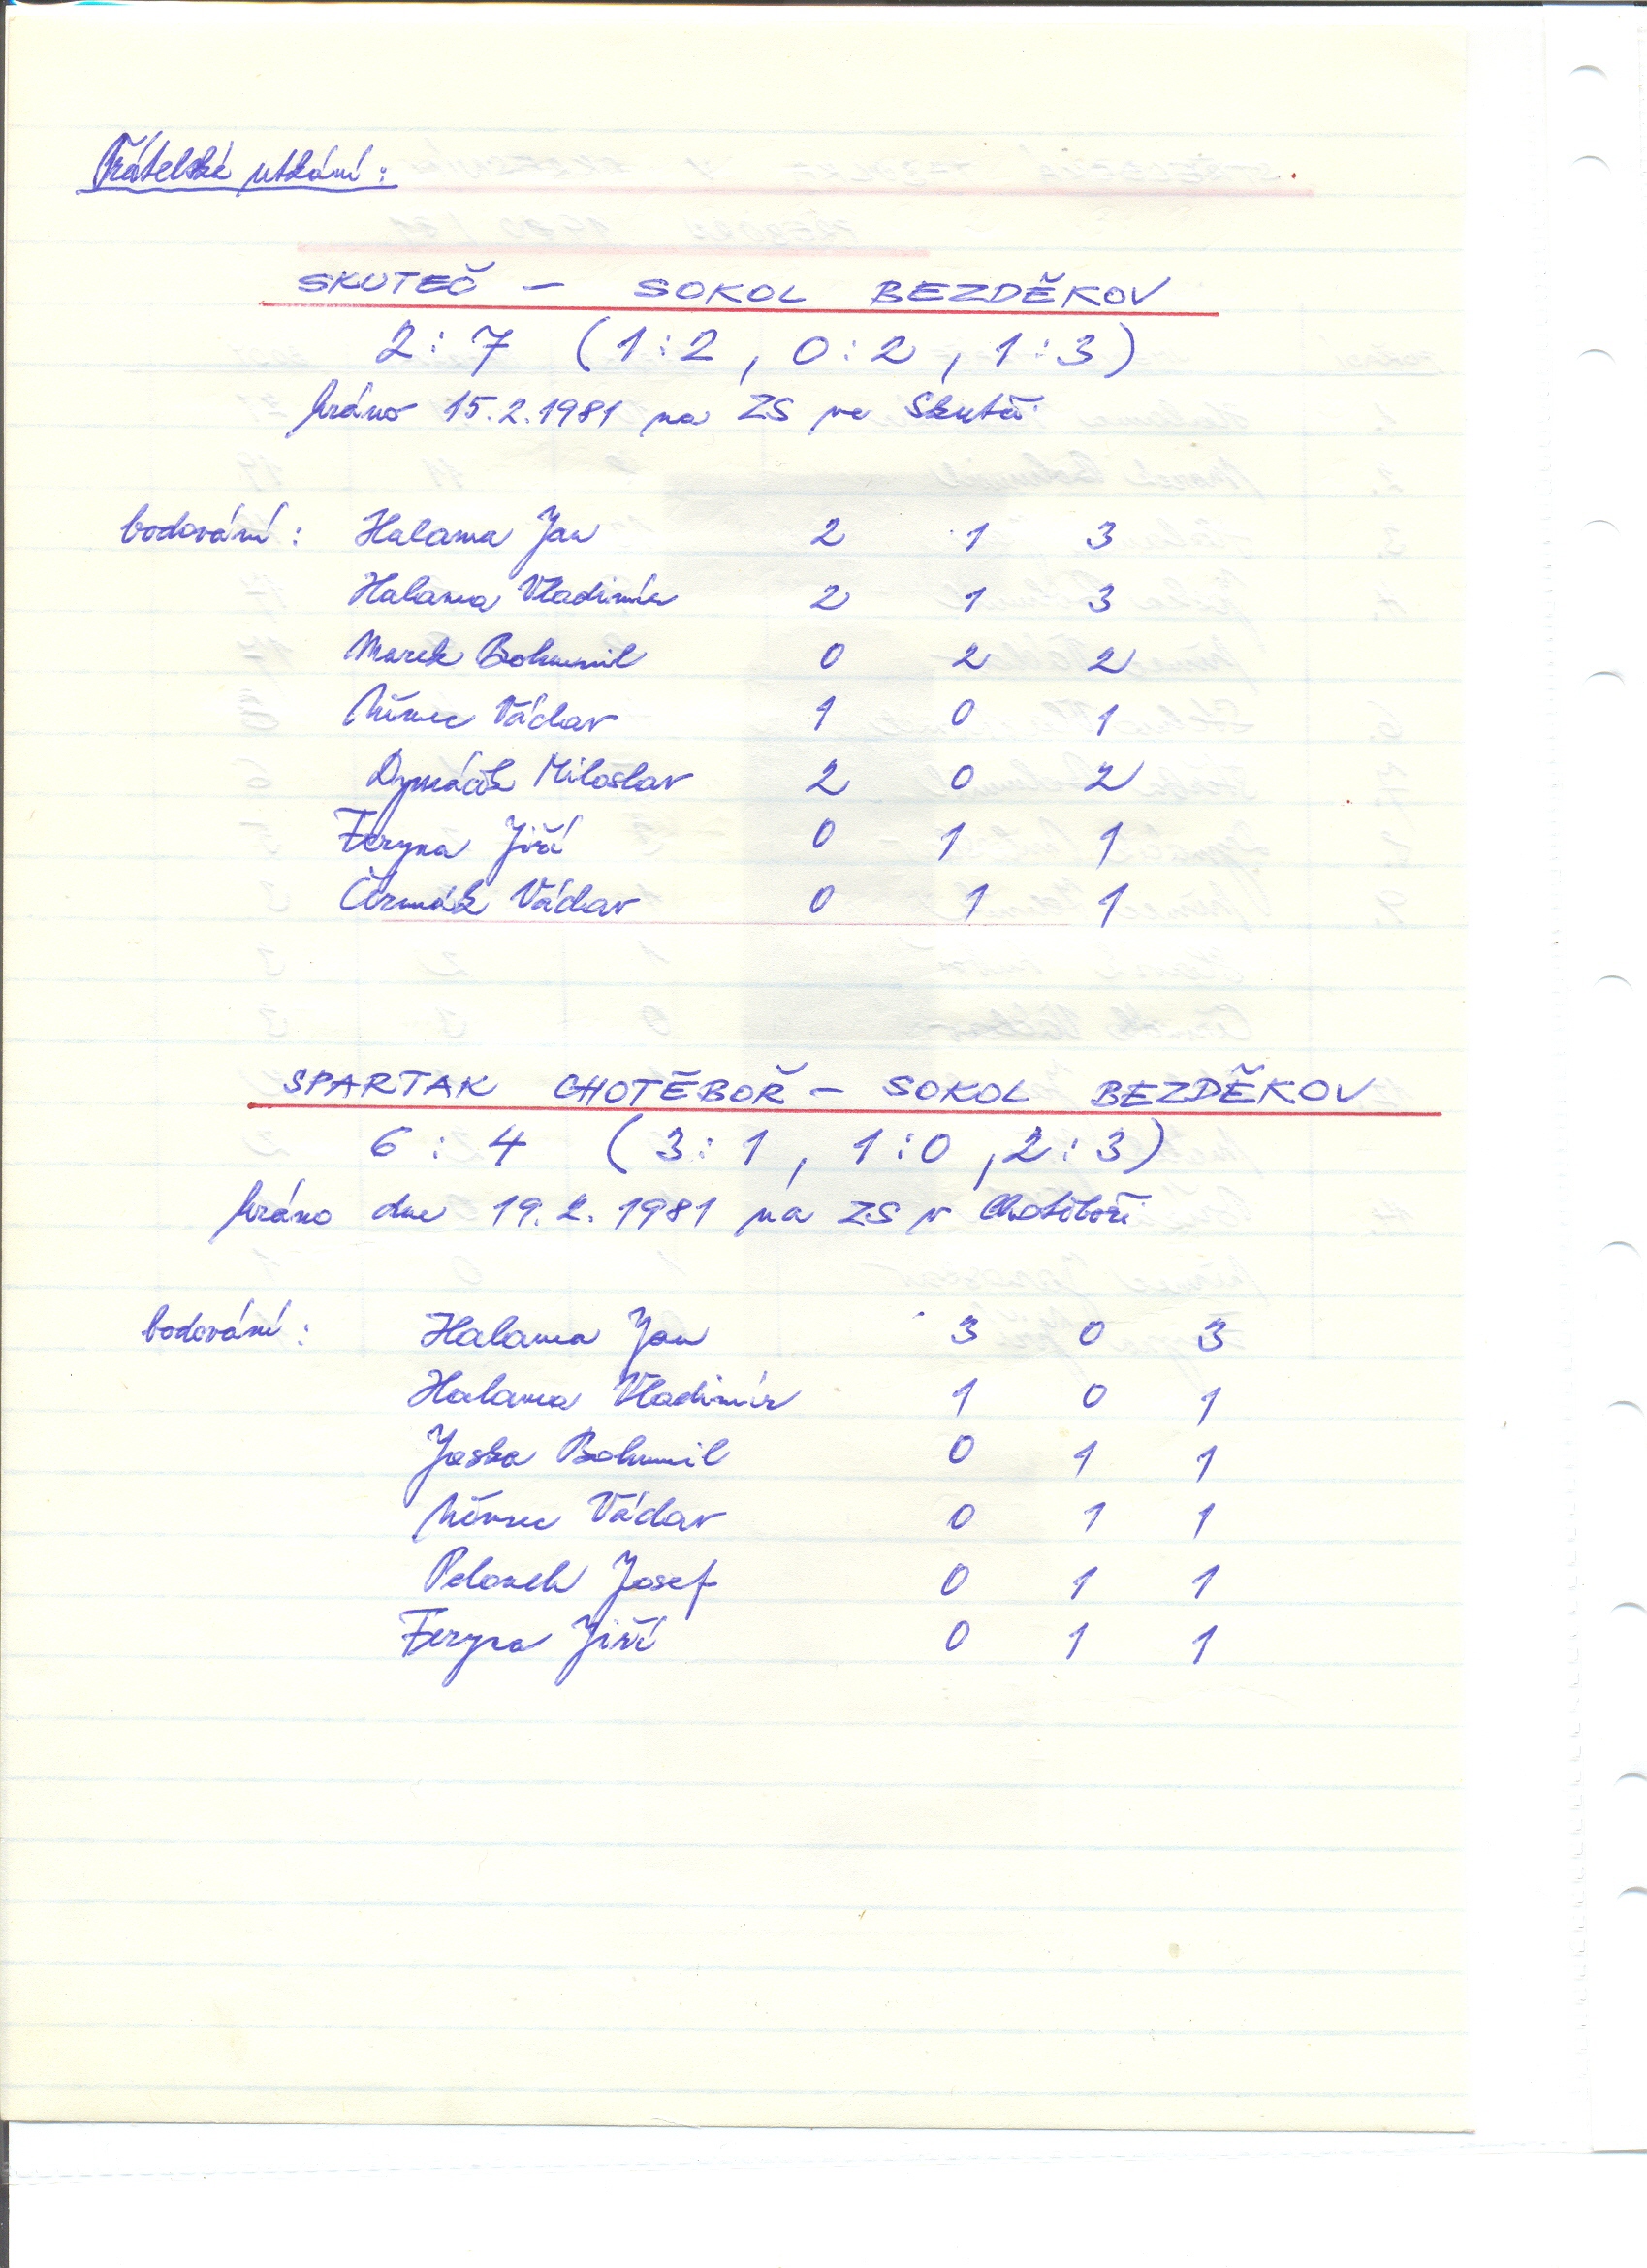 Přátelská utkání:
SKUTEČ - SOKOL BEZDĚKOV
2:7 (1:2, 0:2, 1:3)
hráno 15.2.1981 na ZS ve Skutči
bodování: Halama Jan 2 1 3
Halama Vladimír 2 1 3
Marek Bohumil 0 2 2
Němec Václav 1 0 1
Dymáček Miloslav 2 0 2
Feryna Jiří 0 1 1
Čermák Václav 0 1 1
SPARTAK CHOTĚBOŘ - SOKOL BEZDĚKOV
6:4 (3:1, 1:0, 2:3)
hráno dne 19.2.1981 na ZS v Chotěboři
bodování: Halama Jan 3 0 3
Halama Vladimír 1 0 1
Joska Bohumil 0 1 1
Němec Václav 0 1 1
Josef 0 1 1
Feryna Jiří 0 1 1